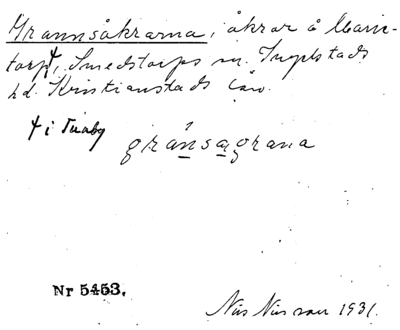 Grannsåkrarna, åkrar å Marin-
torp†, Smedstorps sn. Ingelstads
hd. Kristianstads län.
† i Tuaby
gránsagrana
Nr 5453.
Nils Nilsson 1931.